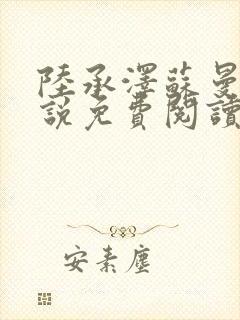 陸承澤蘇曼
說免費閱讀
安素塵